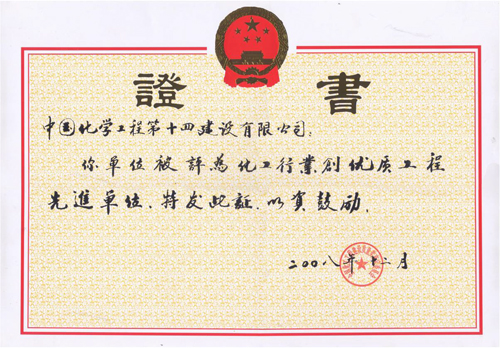 證書
中國化学工程第十四建设有限公司:
你單位被評為化工行業創优质工程
先進單位.特发此証.以資鼓励.
二00八年十二月